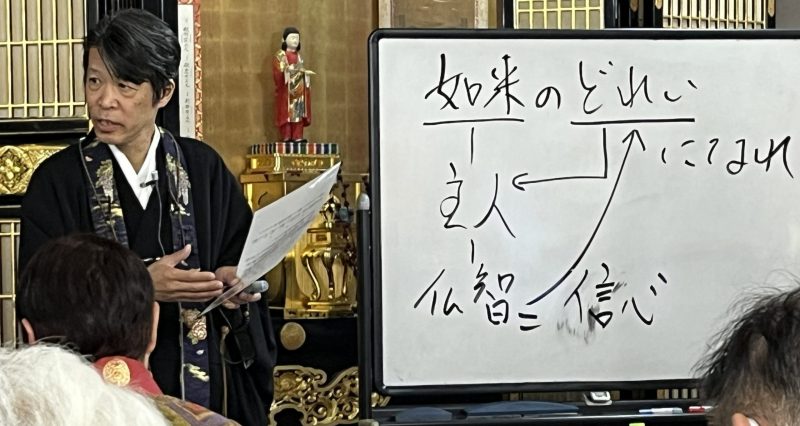 如来のどれい
になれ
主人
仏智=信心